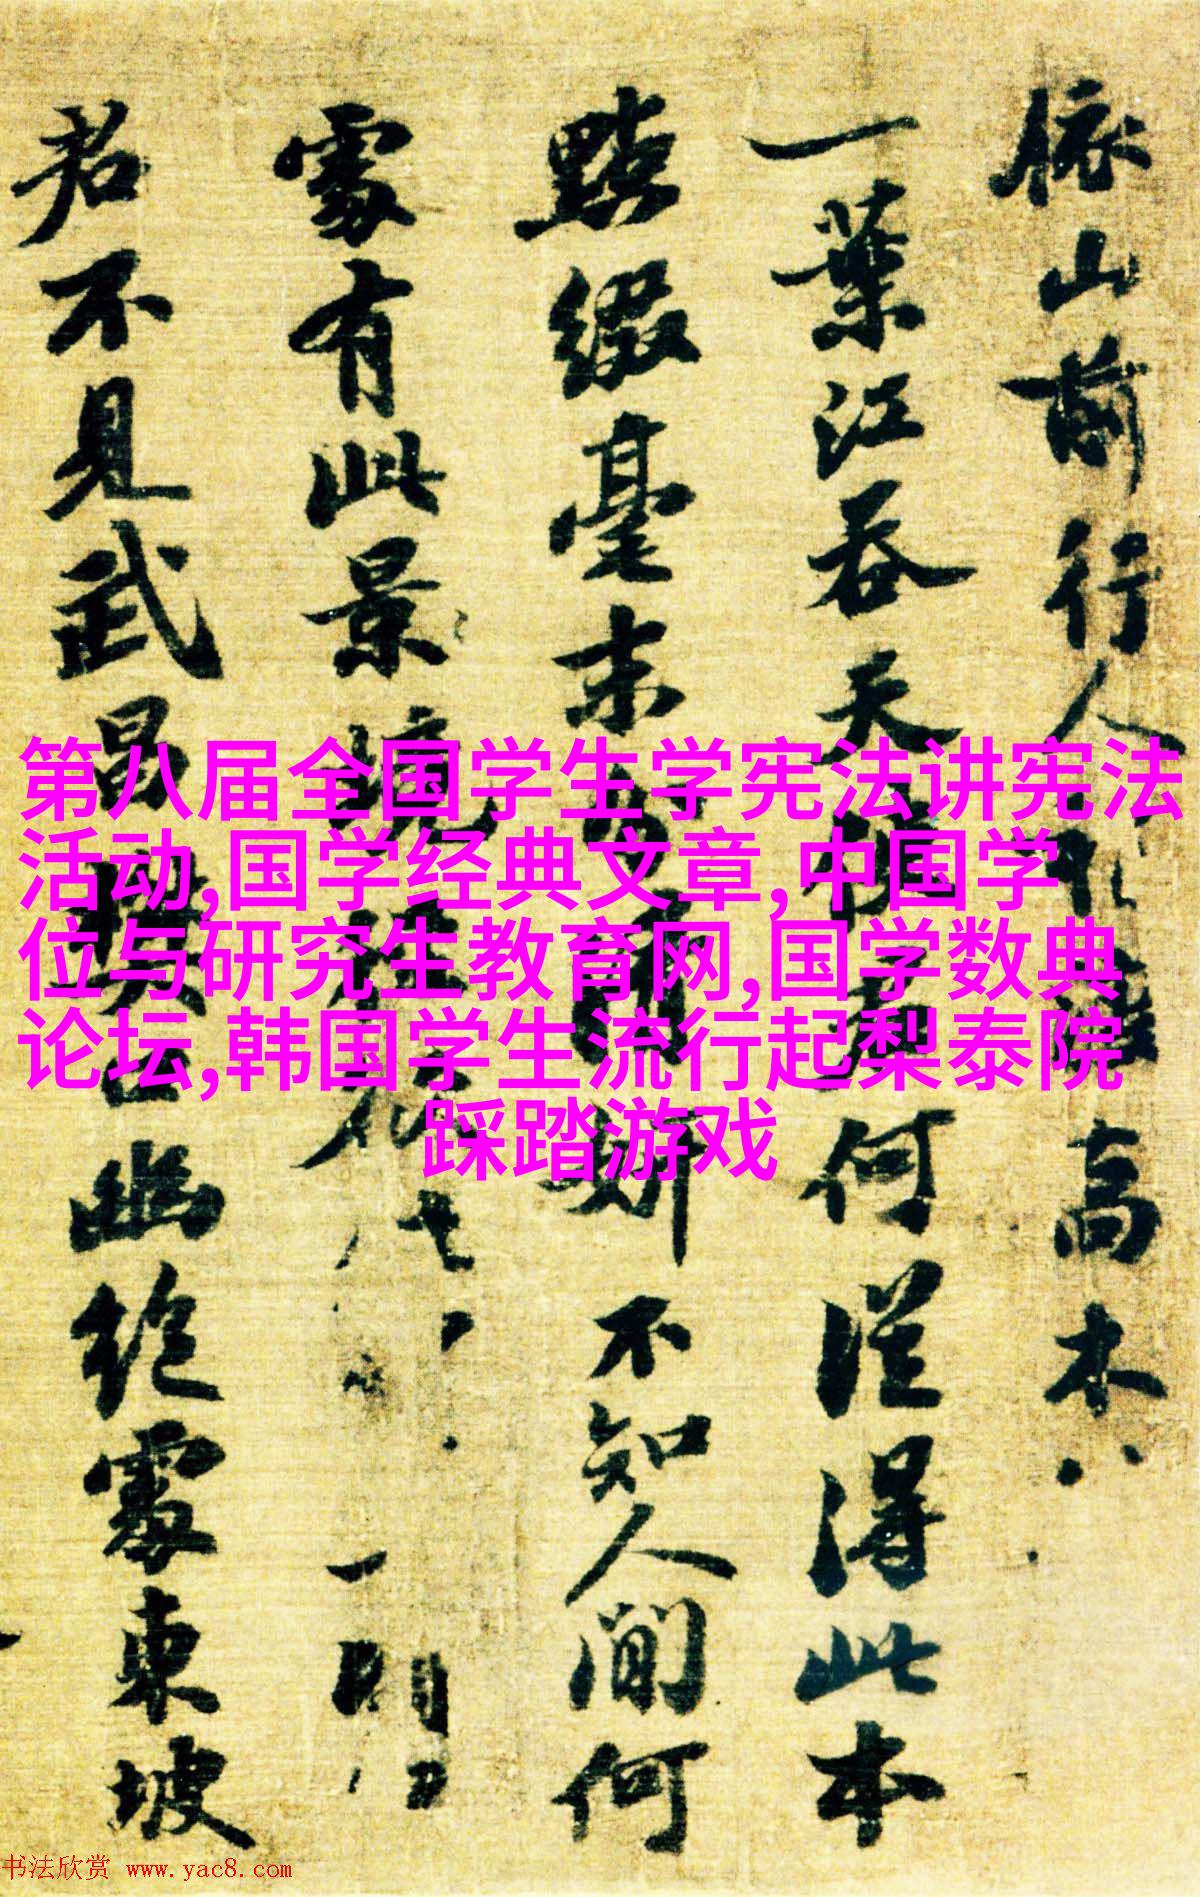 依山前行人
一葉江吞天使君何從得此本
點綴毫末分清妍不知人間何
處有此景
君不見武昌樊口幽絕處東坡
第八届全国学生学宪法讲宪法
活动,国学经典文章,中国学
位与研究生教育网,国学数典
论坛,韩国学生流行起梨泰院
踩踏游戏
书法欣赏 www.yac8.com